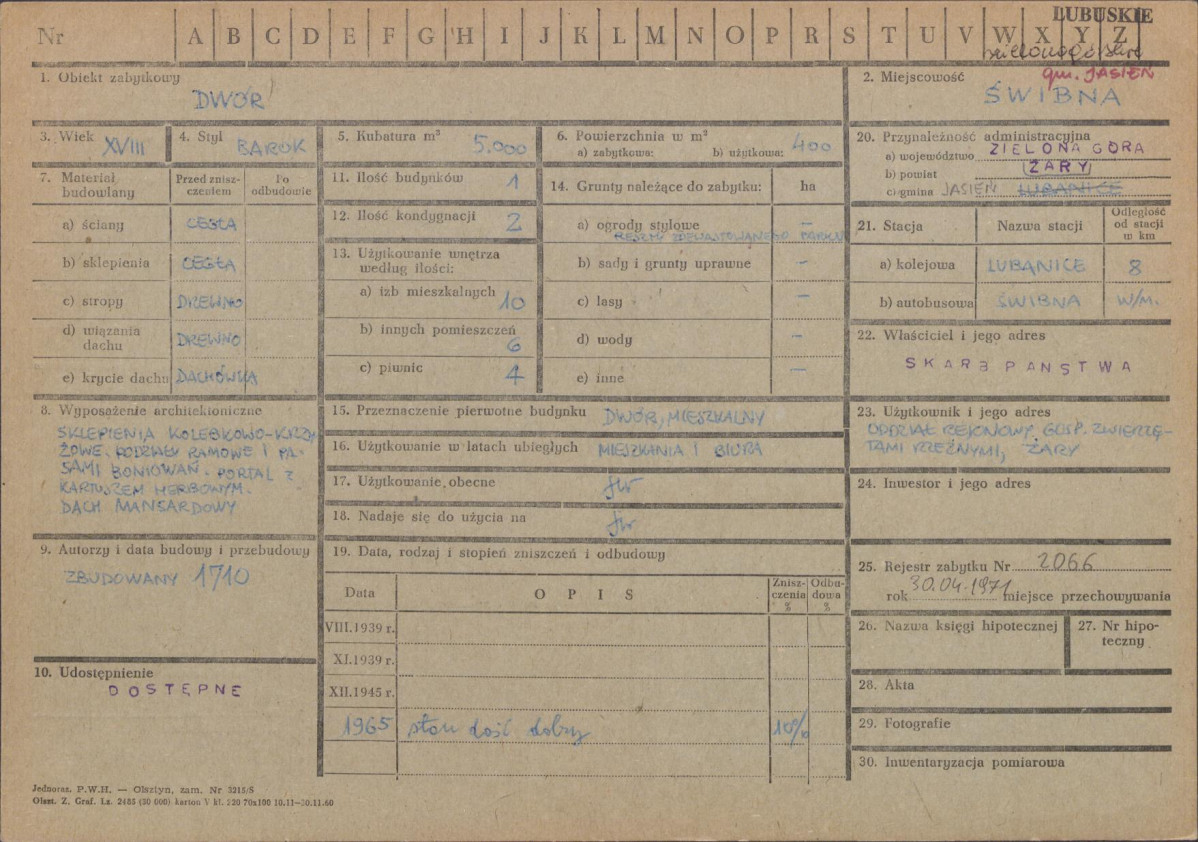 LUBUSKIE
Nr A B C D E F G H I J K L M N O P R S T U V W X Y Z
zielonogórskie
1. Obiekt zabytkowy
DWÓR
2. Miejscowość
gm. JASIEŃ
ŚWIBNA
3. Wiek XVIII
4. Styl BAROK
5. Kubatura m³ 5.000
6. Powierzchnia w m²
a) zabytkowa: b) użytkowa: 400
20. Przynależność administracyjna
a) województwo ZIELONA GÓRA
b) powiat ŻARY
c) gmina JASIEŃ LUBANICE
7. Materiał budowlany
Przed zniszczeniem
Po odbudowie
a) ściany CEGŁA
b) sklepienia CEGŁA
c) stropy DREWNO
d) wiązania dachu DREWNO
e) krycie dachu DACHÓWKA
11. Ilość budynków 1
12. Ilość kondygnacji 2
13. Użytkowanie wnętrza według ilości:
a) izb mieszkalnych 10
b) innych pomieszczeń 6
c) piwnic 4
14. Grunty należące do zabytku: ha
a) ogrody stylowe –
RESZTKI ZDEWASTOWANEGO PARKU
b) sady i grunty uprawne –
c) lasy –
d) wody –
e) inne –
21. Stacja Nazwa stacji Odległość od stacji w km
a) kolejowa LUBANICE 8
b) autobusowa ŚWIBNA W/M.
22. Właściciel i jego adres
SKARB PAŃSTWA
8. Wyposażenie architektoniczne
SKLEPIENIA KOLEBKOWO-KRZY-
ŻOWE. PODZIAŁY RAMOWE I PA-
SAMI BONIOWAŃ. PORTAL Z
KARTUSZEM HERBOWYM.
DACH MANSARDOWY
15. Przeznaczenie pierwotne budynku DWÓR, MIESZKALNY
16. Użytkowanie w latach ubiegłych MIESZKANIA I BIURA
17. Użytkowanie obecne jw
18. Nadaje się do użycia na jw
23. Użytkownik i jego adres
ODDZIAŁ REJONOWY GOSP. ZWIERZĘ-
TAMI RZEŹNYMI, ŻARY
24. Inwestor i jego adres
9. Autorzy i data budowy i przebudowy
ZBUDOWANY 1710
10. Udostępnienie
DOSTĘPNE
19. Data, rodzaj i stopień zniszczeń i odbudowy
Data OPIS Zniszczenia % Odbudowa %
VIII.1939 r.
XI.1939 r.
XII.1945 r.
1965 stan dość dobry 10%
25. Rejestr zabytku Nr 2066
rok 30.04.1971 miejsce przechowywania
26. Nazwa księgi hipotecznej
27. Nr hipoteczny
28. Akta
29. Fotografie
30. Inwentaryzacja pomiarowa
Jednoraz. P.W.H. — Olsztyn, zam. Nr 3215/S
Olszt. Z. Graf. Lz. 2485 (20 000) karton V kl. 220 70x100 10.11—30.11.60